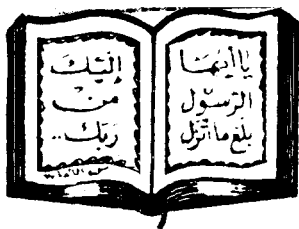 يا أيها
الرسول
بلغ ما أنزل
إليك
من
ربك..